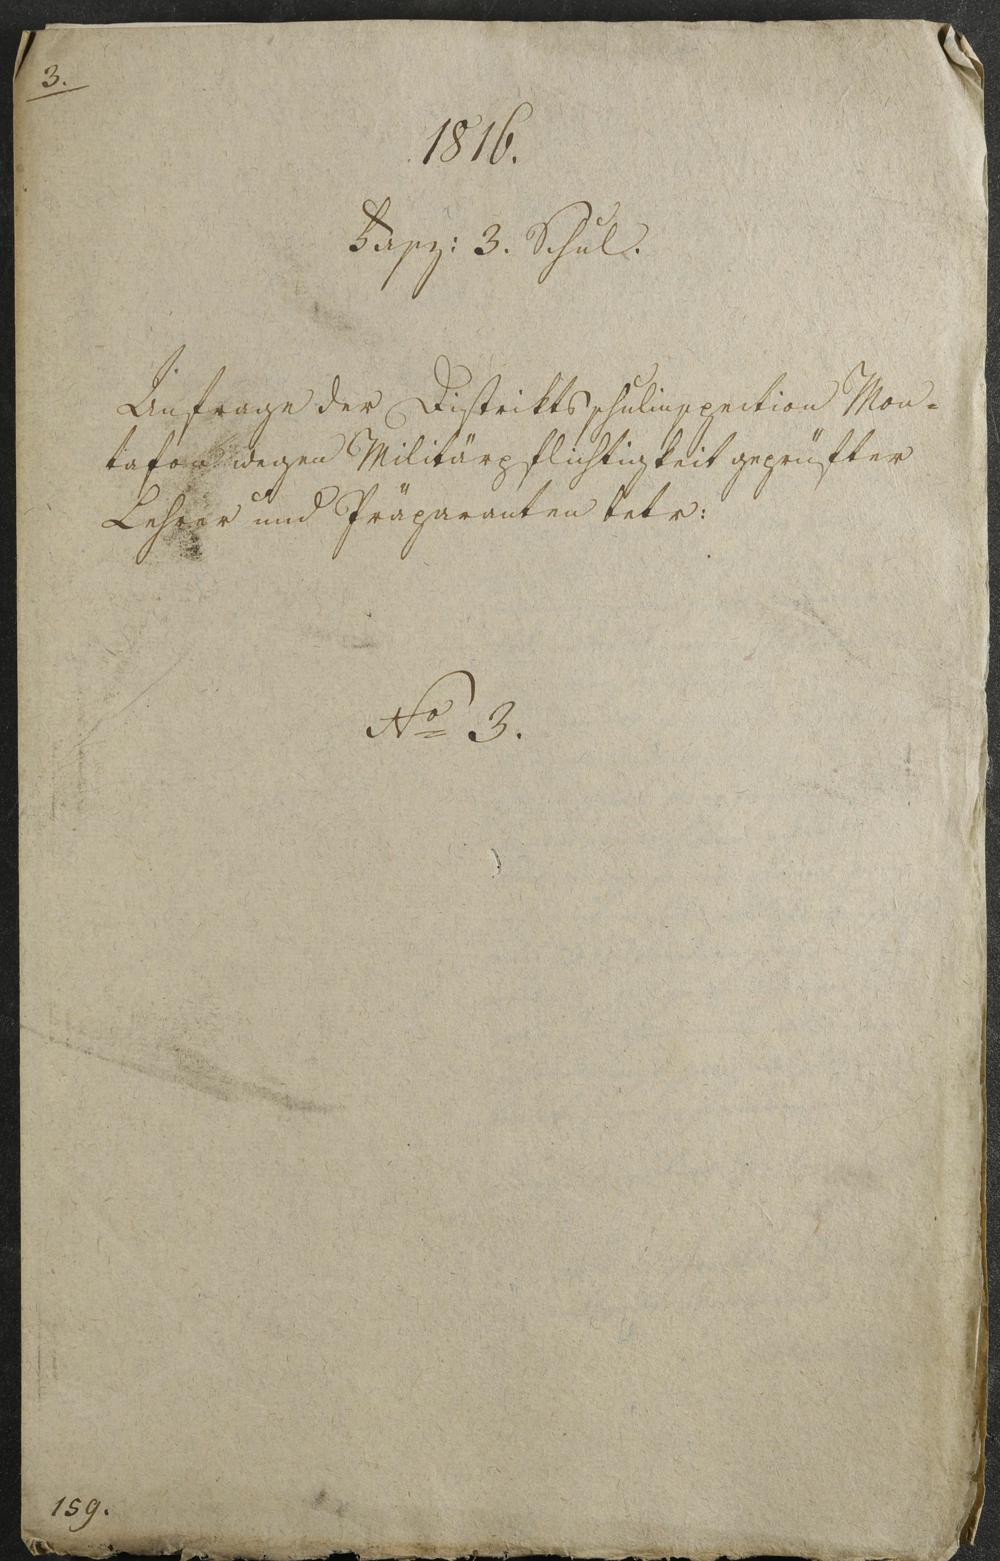 3.
1816.
Fasz: 3. Schul.
Anfrage der Distriktsschulinspection Mon-
tafon wegen Militärpflichtigkeit geprüfter
Lehrer und Präparanten betr:
No 3.
159.